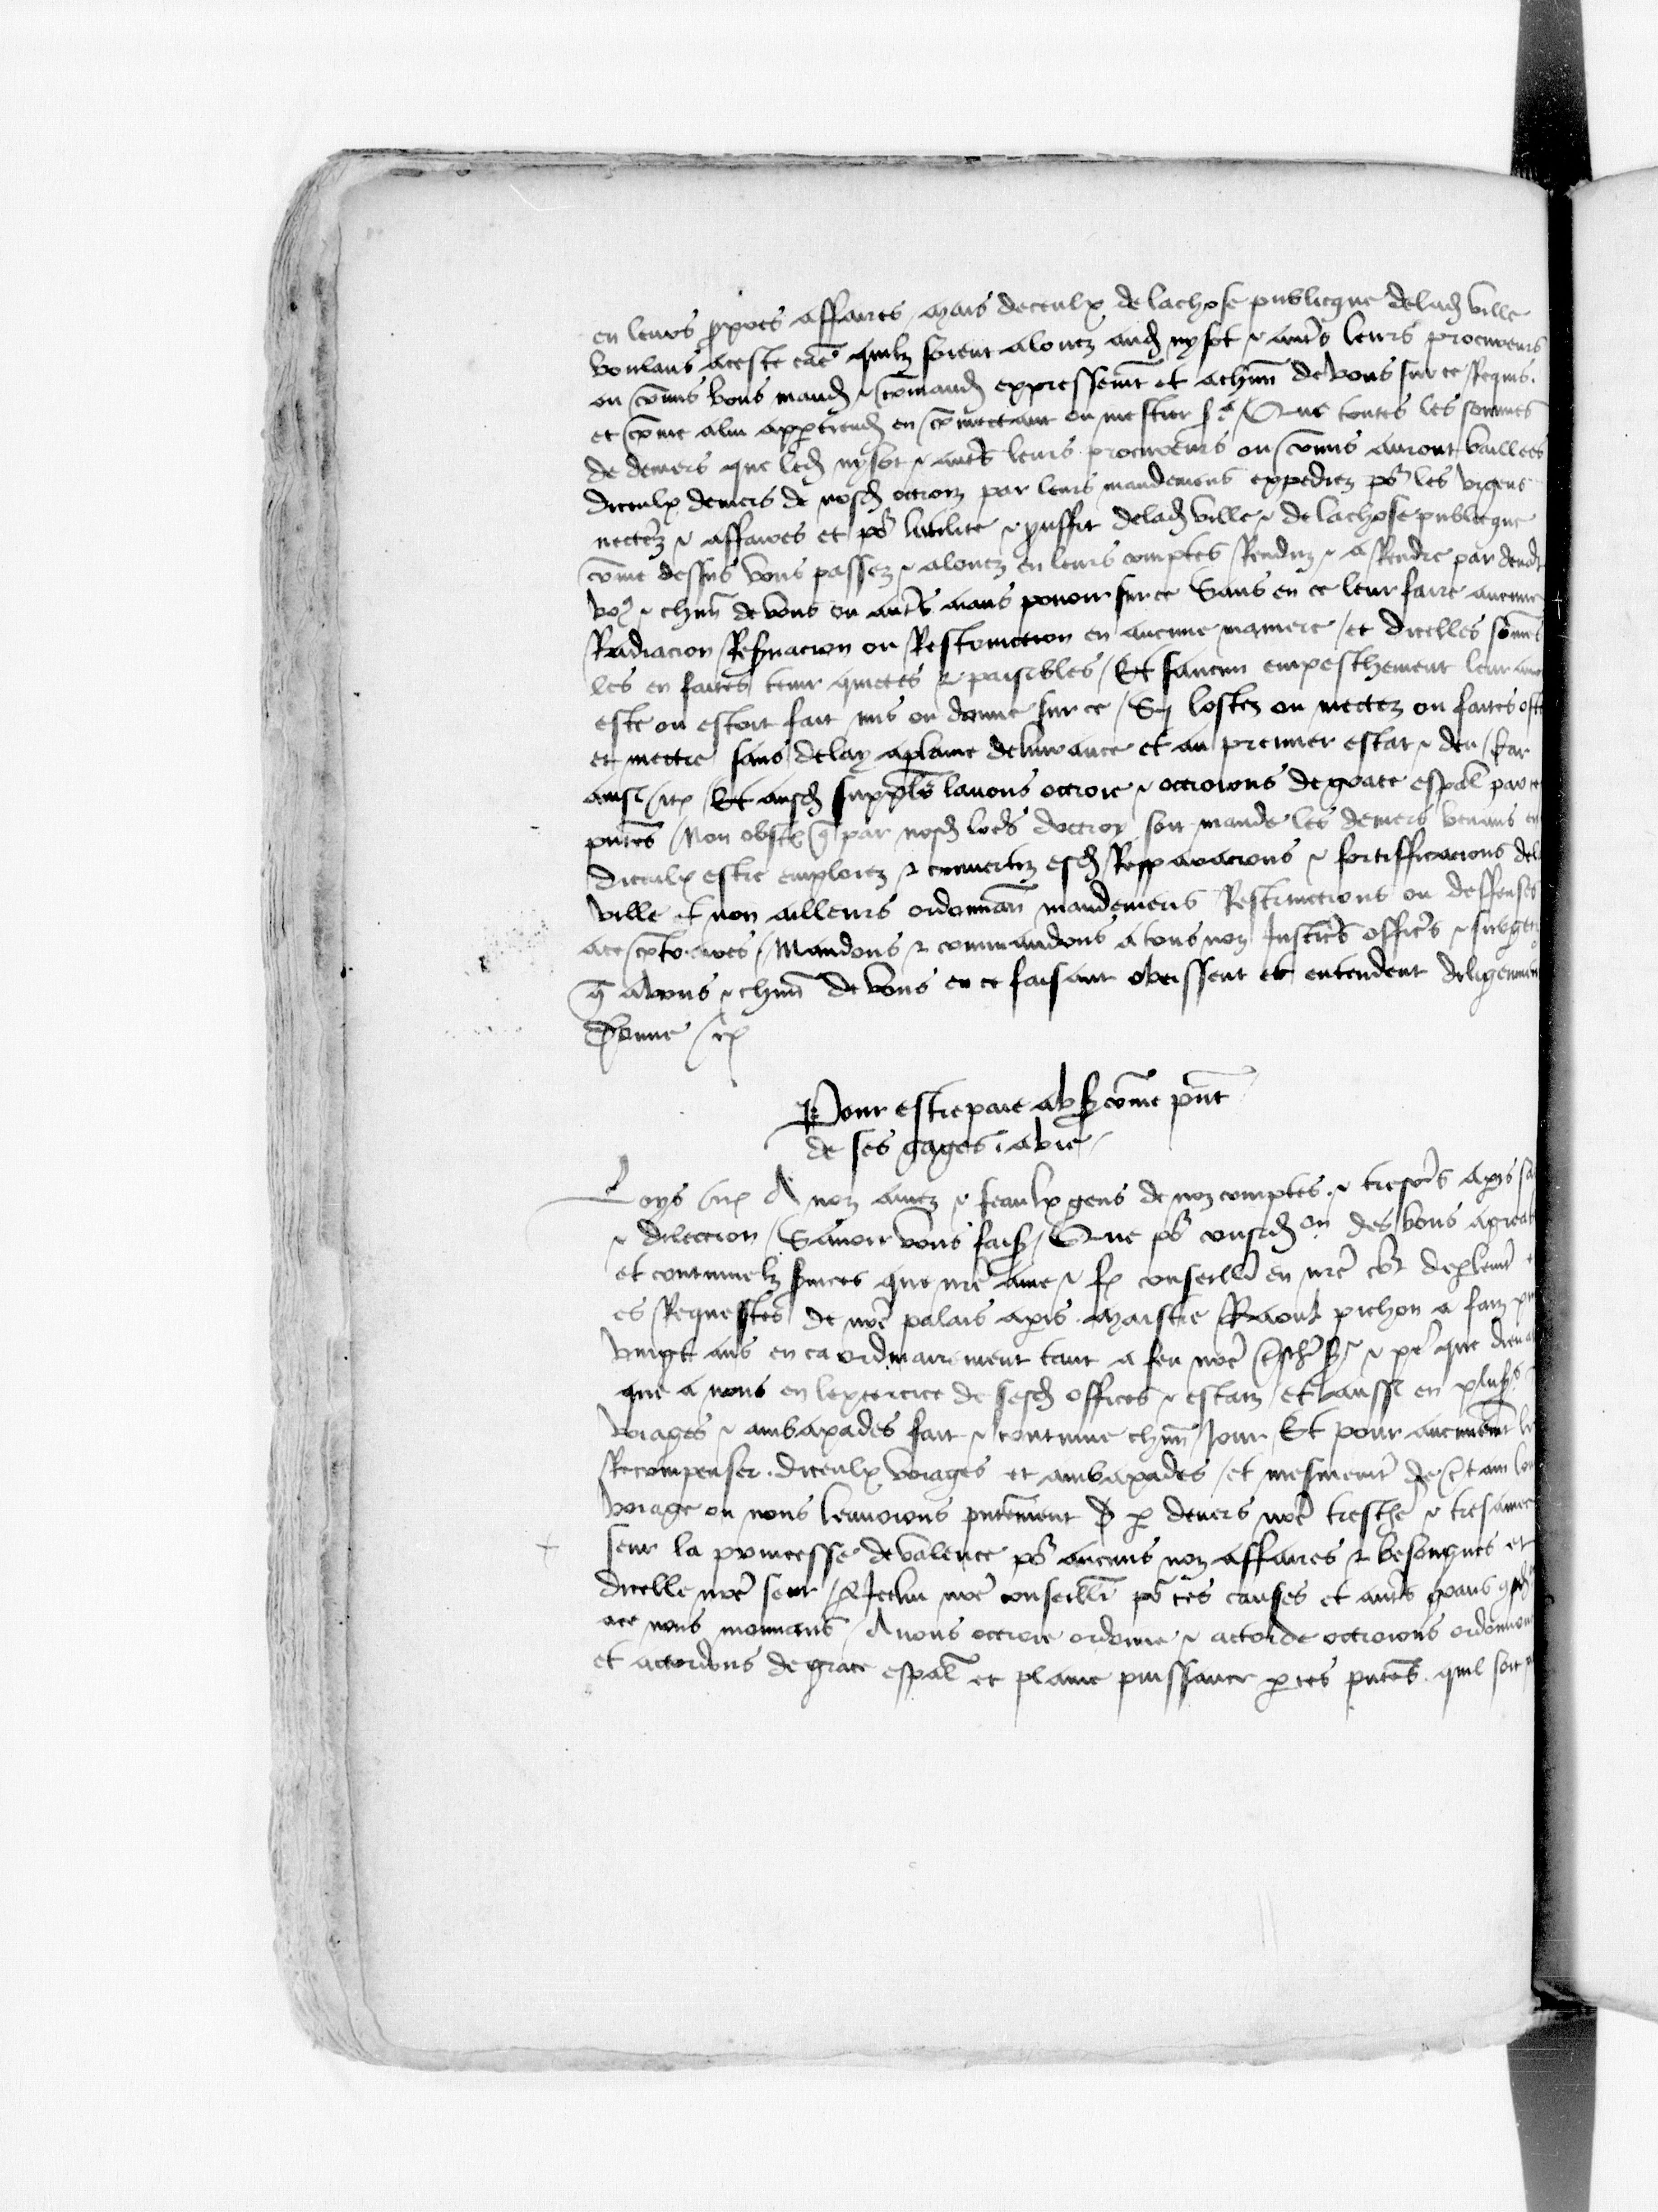 en leurs propres affaires mais diceulx de la chose publicque de lad ville
voulans a ceste cause quilz soient alouez aud nysot et autres leurs procureurs
ou commis vous mand et command expressement et a chun de vous sur ce Requis
et comme a luy appartiend en commectant ou mestier se Que toutes les sommes
de deniers que led nysot et autres leurs procureurs ou commis auront baillees
diceulx deniers de nosd octroiz par leurs mandemens expediez pour les urgens
necces et affaires et pour lutilite et prouffit de lad ville et de la chose publicque
come dessus vous passez et alouez en leurs comptes Renduz et a Rendre par deuāt
vous et chun de vous ou autres aians pouoir sur ce Sans en ce leur faire aucune
Radiacion ou Restrinction en aucune maniere et dicelles sommes
les en faictes tenir quictes et paisibles Et saucun empeschement leur auoit
este ou estoit fait mis ou donne sur ce Sy lostez ou mectez ou faites oster
et mectre sans delay a plaine deliurance et au premier estat et deu Car
ainsi etc Et ausd supplians lauons octroie et octroions de grace espal par ces
pntes Non obstant que par nosd lectres doctroy soit mande les deniers venans
diceulx estre emploiez et conuertiz esd Repparacions et fortifficacions de la
ville et non ailleurs ordonnan mandemens Restrinctions ou deffenses
a ce contraires Mandons et commandons a tous noz Justiciers officiers et subgetz
que a vous et chun de vous en ce faisant obeissent et entendent diligemment
Donne etc
Pour estre paie come pnt
de ses gages a vie
Loys etc A noz amez et feaulx gens de noz comptes et tresoriers a paris salut
et dilection Sauoir vous faisons Que pour consideracion des bons agreables
et continuelz seruices que nre ame et feal conseiller en nre court de parlement et
es Requestes de nre palais a paris maistre Raoul pichon a faiz puis
vingt ans en ca ordinairement tant a feu nre trescher sr et pere que dieu absoille
que a nous en lexercice de sesd offices et estatz et aussi en plusrs
voiages et ambaxades fait et continue chun Jour Et pour aucunement le
Recompenser diceulx voiages et ambaxades et mesmement de certain long
voiage ou nous lenuoions pntement par deuers nre treschere et tresamee
seur la princesse de valence pour aucuns noz affaires et besongnes et
dicelle nre seur Icelui nre conseiller pour ces causes et autres grans
a ce nous mouuans Auons octroie ordonne et accorde octroions ordonnons
et accordons de grace espal et plaine puissance par ces pntes quil soit